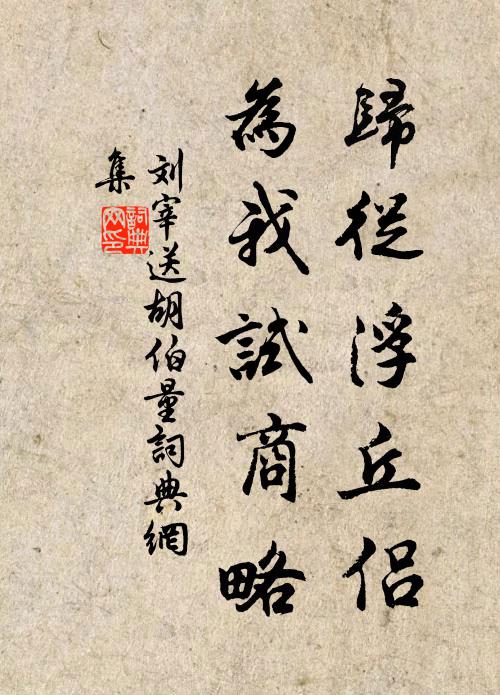 歸從浮丘侶
為我試商略
刘宰送胡伯量詞典網
集
詞典
网印